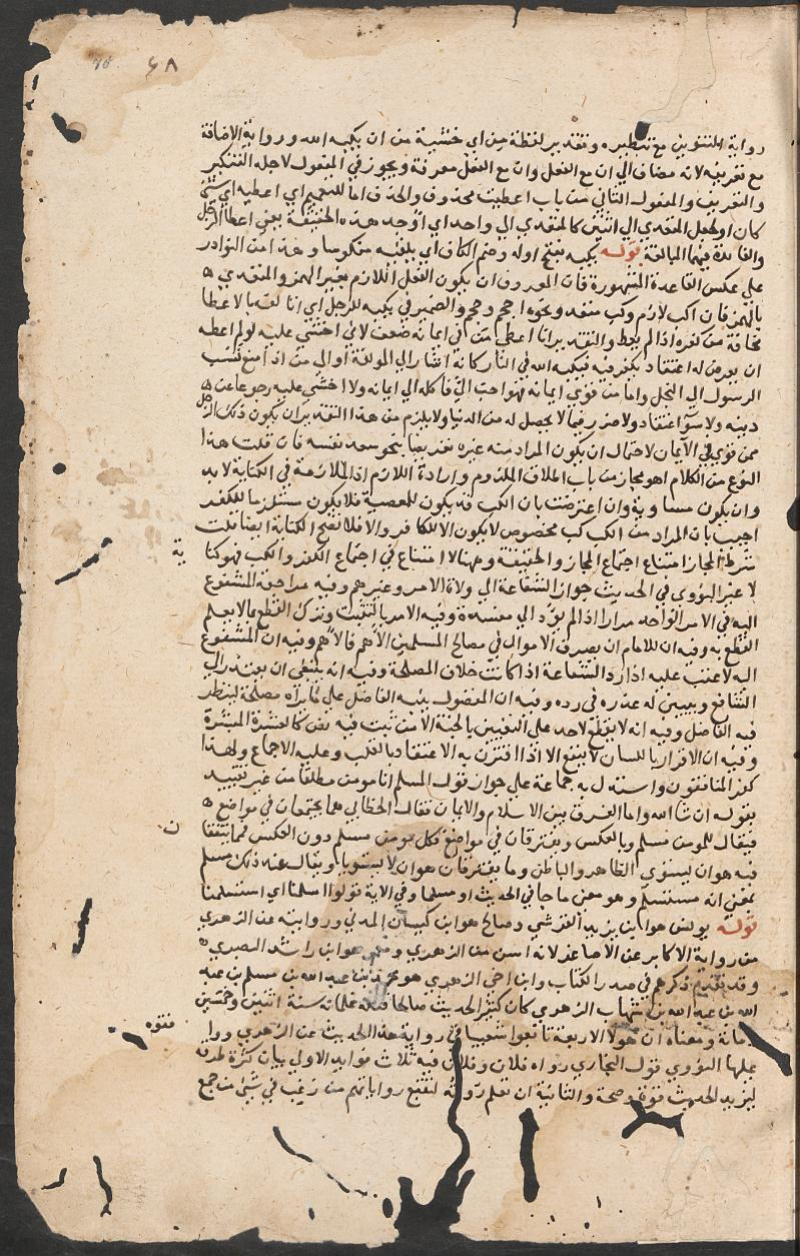 ٦٨
رواية التنوين مع تنظيره وتقدير لفظة من اي خشية من ان يكبه الله ورواية الاضافة
مع تعريفه لانه مضاف الي ان مع الفعل وان مع الفعل معرفة ويجوز في المفعول لاجله التنكير
والتعريف والمفعول الثاني من باب اعطيت محذوف والحذف اما للتعميم اي اعطيه اي شي
كان او لجعل المتعدي الي اثنين كالمتعدي الي واحد اي اوجد هذه الحقيقة يعني اعطا الرجل
والفائدة فيهما المبالغة قوله يكبه بفتح اوله وضم الكاف اي يلقيه منكوسا وهذا من النوادر
علي عكس القاعدة المشهورة فان المعروف ان يكون الفعل اللازم بغير الهمز والمتعدي
بالهمز فان اكب لازم وكب متعد ونحوه احجم وحجم والضمير في يكبه للرجل اي اتالفه بالاعطا
مخافة من كفره اذا لم يعط والتقدير انا اعطي من في ايمانه ضعف لاني اخشي عليه لو لم اعطه
ان يعرض له اعتقاد يكفر فيه فيكبه الله في النار كانه اشار الي المولفة او الي من اذا منع نسب
الرسول الي البخل واما من قوي ايمانه فهو احب الي فاكله الي ايمانه ولا اخشي عليه رجوعا عن
دينه ولا سو اعتقاد ولا ضرر فيما لا يحصل له من الدنيا ولا يلزم من هذا التقدير ان يكون ذلك الرجل
ممن قوي في الايمان لاحتمال ان يكون المراد منه غيره تعريضا بنحو سعد نفسه فان قلت هذا
النوع من الكلام اهو مجاز من باب اطلاق الملزوم وارادة اللازم اذ الملازمة في الكناية لا بد
وان يكون مساوية وان اعترضت بان الكب قد يكون للمعصية فلا يكون مستلزما للكفر
اجيب بان المراد من الكب كب مخصوص لا يكون الا للكافر والا فلا تصح الكناية ايضا قلت
شرط المجاز امتناع اجتماع المجاز والحقيقة وههنا لا امتناع في اجتماع الكفر والكب فهو كنا
ية
لا غير النووي في الحديث جواز الشفاعة الي ولاة الامر وغيرهم وفيه مراجعة المشفوع
اليه في الامر الواحد مرارا اذا لم يود الي مفسدة وفيه الامر بالتثبت وترك القطع بما لا يعلم
القطع به وفيه ان للامام ان يصرف الاموال في مصالح المسلمين الاهم فالاهم وفيه ان المشفوع
اليه لا عتب عليه اذا رد الشفاعة اذا كانت خلاف المصلحة وفيه انه ينبغي ان يعتذر الي
الشافع ويبين له عذره في رده وفيه ان المفضول ينبه الفاضل علي ما يراه مصلحة لينظر
فيه الفاضل وفيه انه لا يقطع لاحد علي التعيين بالجنة الا من ثبت فيه نص كالعشرة المبشرة
وفيه ان الاقرار باللسان لا ينفع الا اذا اقترن به الاعتقاد بالقلب وعليه الاجماع ولهذا
كفر المنافقون واستدل به جماعة علي جواز قول المسلم انا مومن مطلقا من غير تقييد
بقوله ان شا الله واما الفرق بين الاسلام والايمان فقال الخطابي هما يجتمعان في مواضع
فيقال للمومن مسلم وبالعكس ويفترقان في مواضع فكل مومن مسلم دون العكس فما يتفقا
ن
فيه هو ان يستوي الظاهر والباطن وما يفترقان هو ان لا يستويا ويقال عنه ذلك مسلم
بمعني انه مستسلم وهو معني ما جا في الحديث او مسلما وفي الاية قولوا اسلمنا اي استسلمنا
قوله يونس هو ابن يزيد القرشي وصالح هو ابن كيسان المدني وروايته عن الزهري
من رواية الاكابر عن الاصاغر لانه اسن من الزهري ومعمر هو ابن راشد البصري
وقد تقدم ذكرهم في صدر الكتاب وابن اخي الزهري هو محمد بن عبد الله بن مسلم بن عبيد
الله بن عبد الله بن شهاب الزهري كان كثير الحديث صالحا قتله غلمانه سنة اثنين وخمسين
ومائة ومعناه ان هولا الاربعة تابعوا شعيبا في رواية هذا الحديث عن الزهري ووا
فقوه
عليها النووي قول البخاري رواه فلان وفلان فيه ثلاث فوايد الاولي بيان كثرة طرقه
ليزيد الحديث قوة وصحة والثانية ان تعلم رواته لتتبع رواياتهم من رغب في شي من جمع